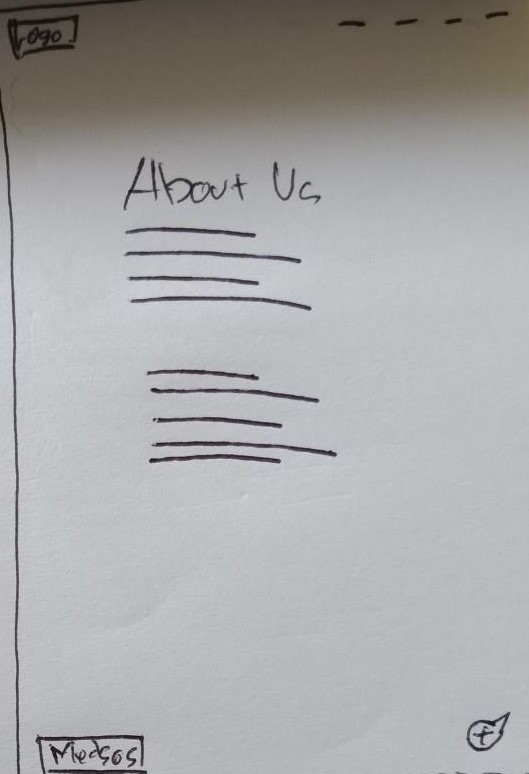 Logo
About Us
Medsos